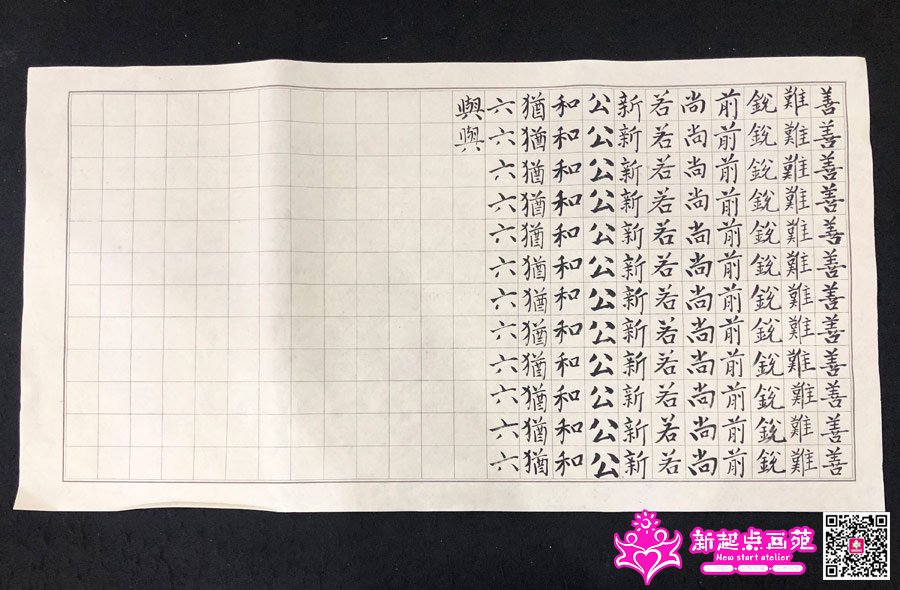 善善善善善善善善善善善善
難難難難難難難難難難難難
銳銳銳銳銳銳銳銳銳銳銳銳
前前前前前前前前前前前前
尚尚尚尚尚尚尚尚尚尚尚尚
若若若若若若若若若若若若
新新新新新新新新新新新新
公公公公公公公公公公公公
和和和和和和和和和和和和
猶猶猶猶猶猶猶猶猶猶猶猶
六六六六六六六六六六六六
與與
新起点画苑
New start atelier